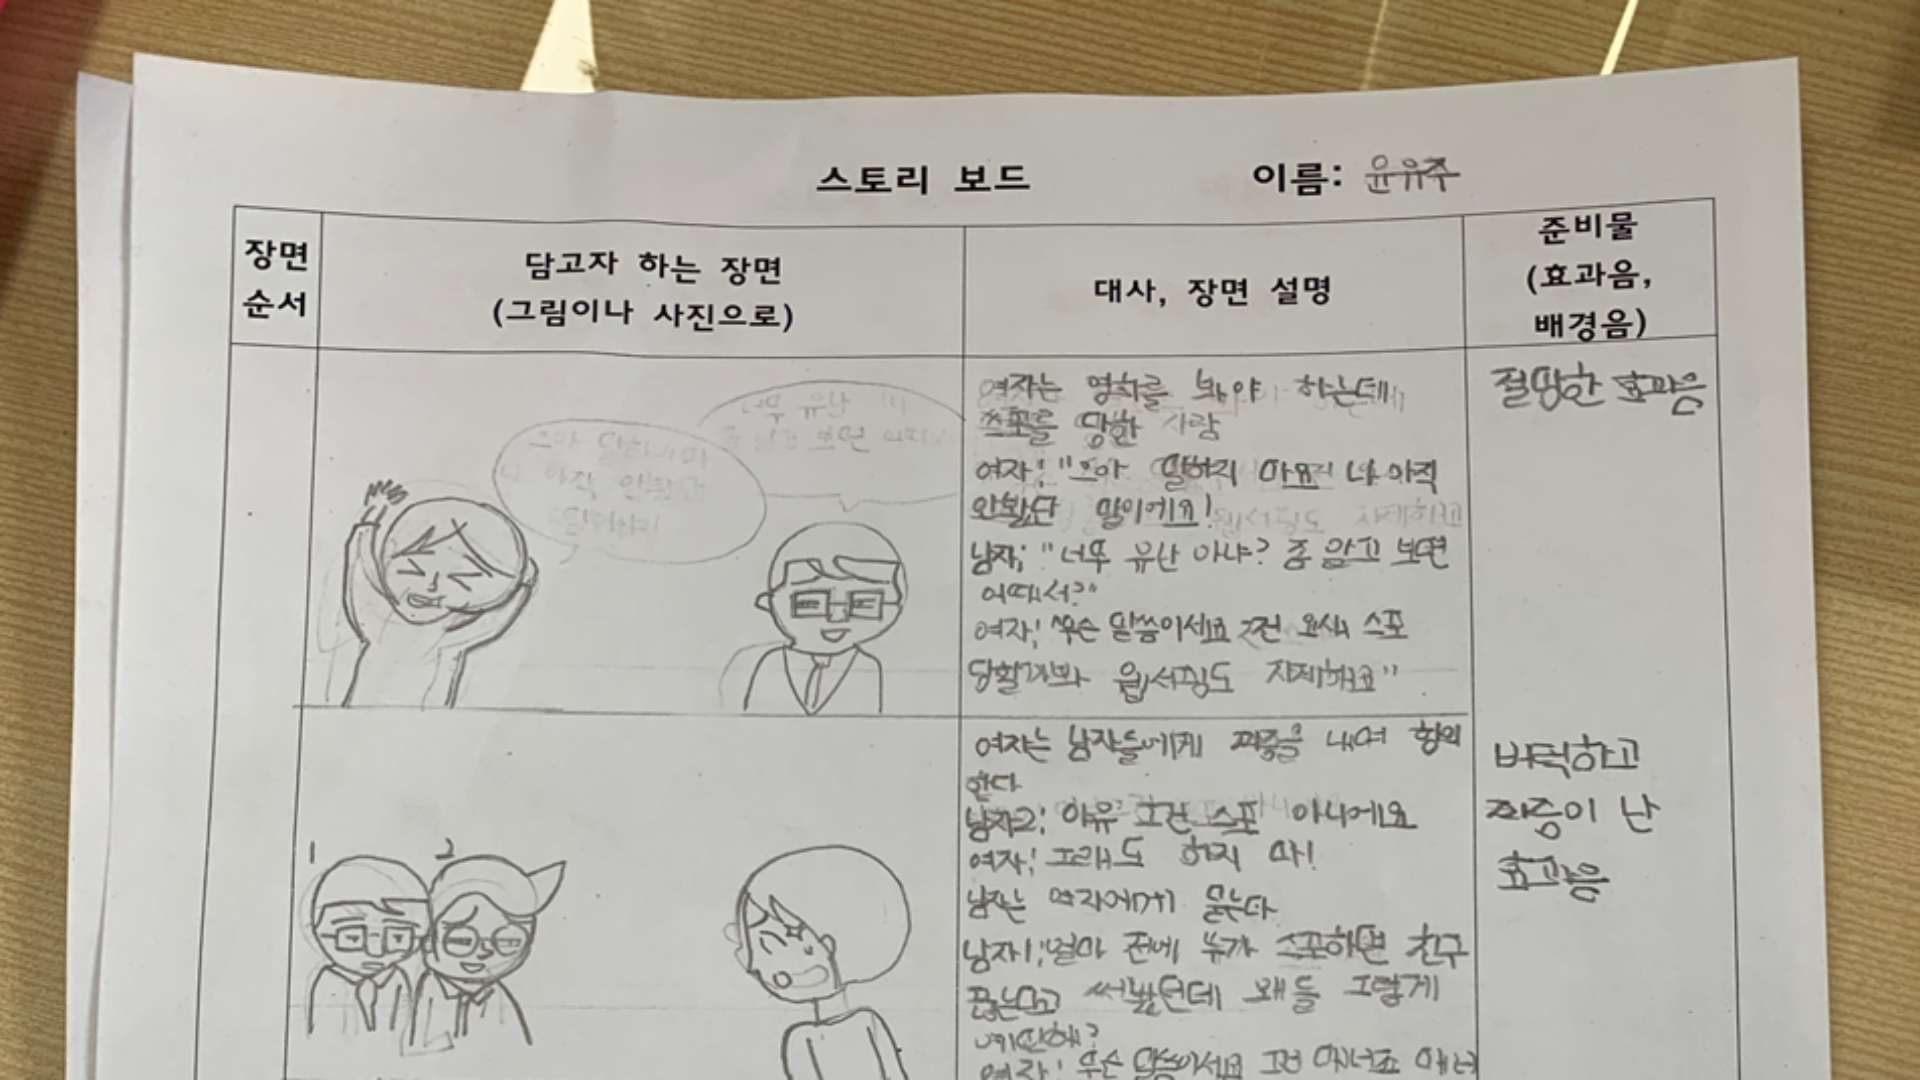 스토리 보드
이름: 윤유주
장면
순서
담고자 하는 장면
(그림이나 사진으로)
대사, 장면 설명
준비물
(효과음,
배경음)
여자는 영화를 봐야 하는데
스포를 당한 사람
여자: "으아 말하지 마요 나 아직
안봤단 말이에요!
남자: "너무 유난 아냐? 좀 알고 보면
어때서?"
여자: "무슨 말씀이세요 전 요새 스포
당할까봐 웹서핑도 자제해요"
절망한 효과음
여자는 남자들에게 짜증을 내며 항의
한다
남자2: 아유 그건 스포 아니에요
여자: 그래도 하지 마!
남자는 여자에게 묻는다
남자1: "얼마 전에 누가 스포하면 친구
끊는다고 써놨던데 왜들 그렇게
예민해?
여자: 무슨 말씀이세요 그건
버럭하고
짜증이 난
효과음
1
2